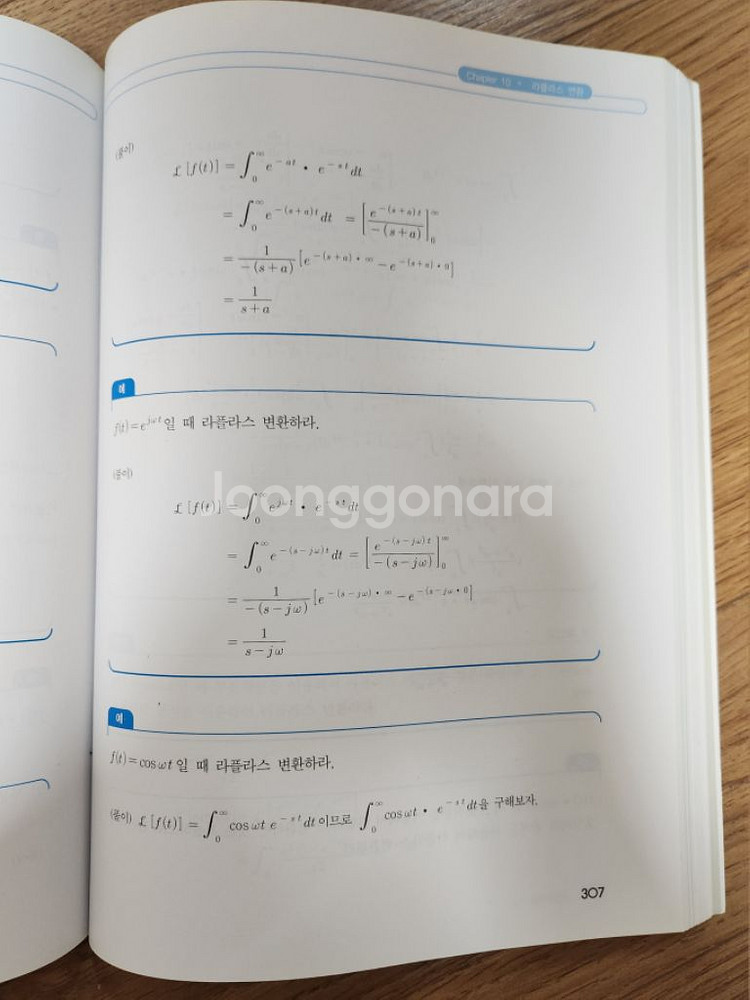 Chapter 10 • 라플라스 변환
(풀이)
£ [f(t)] = ∫₀^∞ e^{-at} • e^{-st} dt
= ∫₀^∞ e^{-(s+a)t} dt = [e^{-(s+a)t} / -(s+a)]₀^∞
= 1/-(s+a) [e^{-(s+a)•∞} - e^{-(s+a)•0}]
= 1/(s+a)
예
f(t)=e^{jωt} 일 때 라플라스 변환하라.
(풀이)
Joonggonara
£ [f(t)] = ∫₀^∞ e^{jωt} • e^{-st} dt
= ∫₀^∞ e^{-(s-jω)t} dt = [e^{-(s-jω)t} / -(s-jω)]₀^∞
= 1/-(s-jω) [e^{-(s-jω)•∞} - e^{-(s-jω•0)}]
= 1/(s-jω)
예
f(t)=cosωt 일 때 라플라스 변환하라.
(풀이) £ [f(t)] = ∫₀^∞ cosωt e^{-st} dt 이므로 ∫₀^∞ cosωt • e^{-st} dt을 구해보자.
307